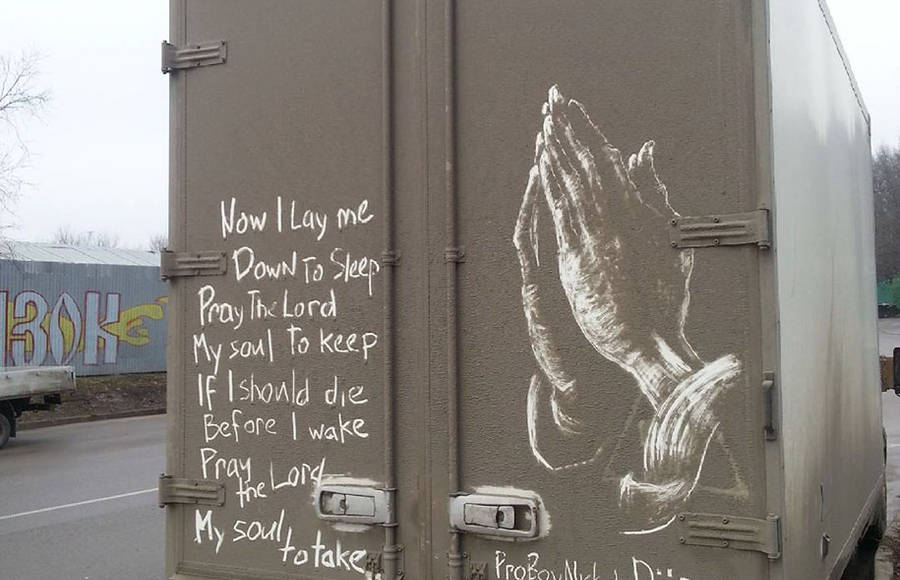 Now I Lay me
Down To Sleep
Pray The Lord
My soul To keep
If I should die
Before I wake
Pray
the Lord
My soul
to take
ИЗОК